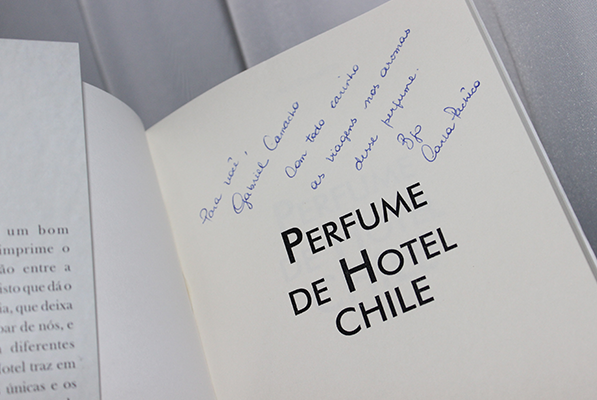 um bom
imprime o
ão entre a
isto que dá o
ia, que deixa
par de nós, e
diferentes
otel traz em
únicas e os
Para você,
Gabriel Camacho
com todo carinho
as viagens nos aromas
desse perfume.
Bjo
Carla Pachêco
PERFUME
DE HOTEL
CHILE